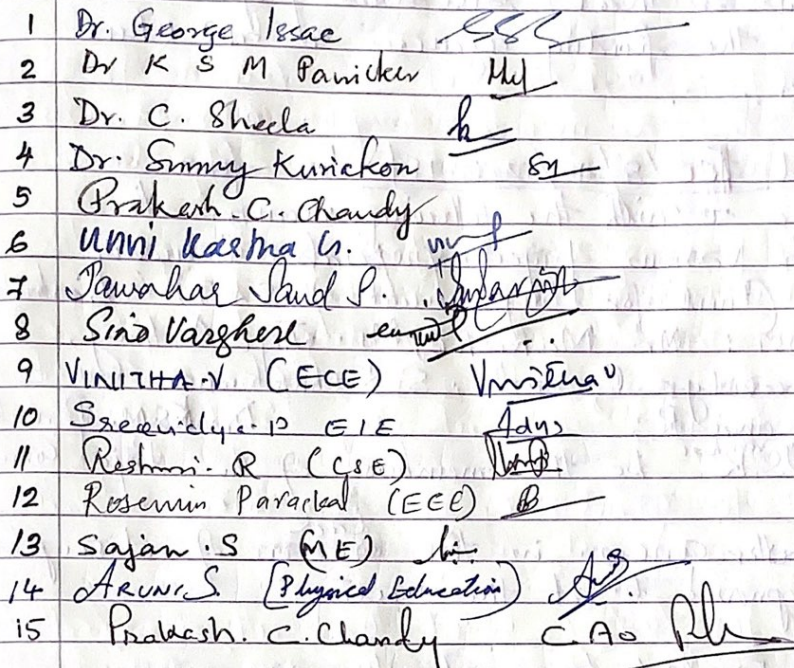 1 Dr. George Issac
2 Dr K S M Panicker
3 Dr. C. Sheela
4 Dr. Sunny Kuriakon
5 Prakash. C. Chandy
6 Unni Kartha G.
7 Jawahar Saud S.
8 Sino Varghese
9 VINITHA.V (ECE) Vinitha V
10 Sreevidya. P EIE
11 Reshmi. R (CSE)
12 Rosemin Parackal (ECE)
13 Sajan .S (ME)
14 ARUN.S. [Physical Education)
15 Prakash. C. Chandy CAO